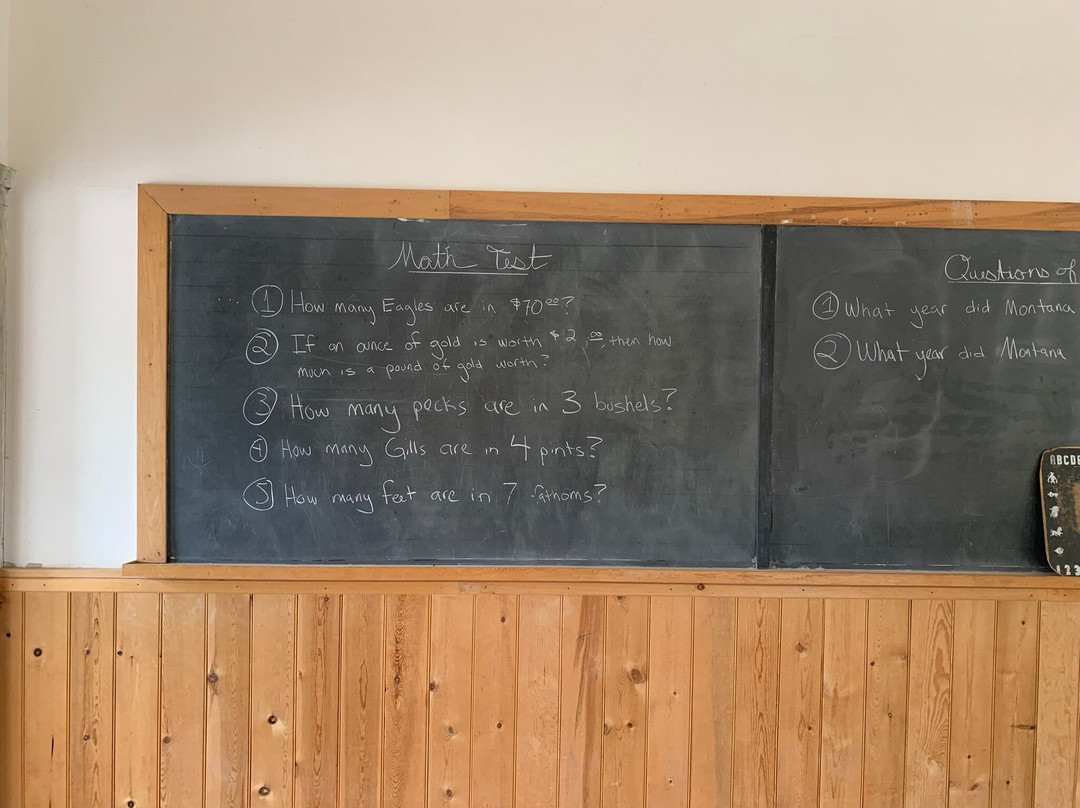 Math Test
① How many Eagles are in $70.00?
② If an ounce of gold is worth $2.00, then how
much is a pound of gold worth?
③ How many pecks are in 3 bushels?
④ How many Gills are in 4 pints?
⑤ How many feet are in 7 fathoms?
Questions of
① What year did Montana
② What year did Montana
ABCDE
1 2 3